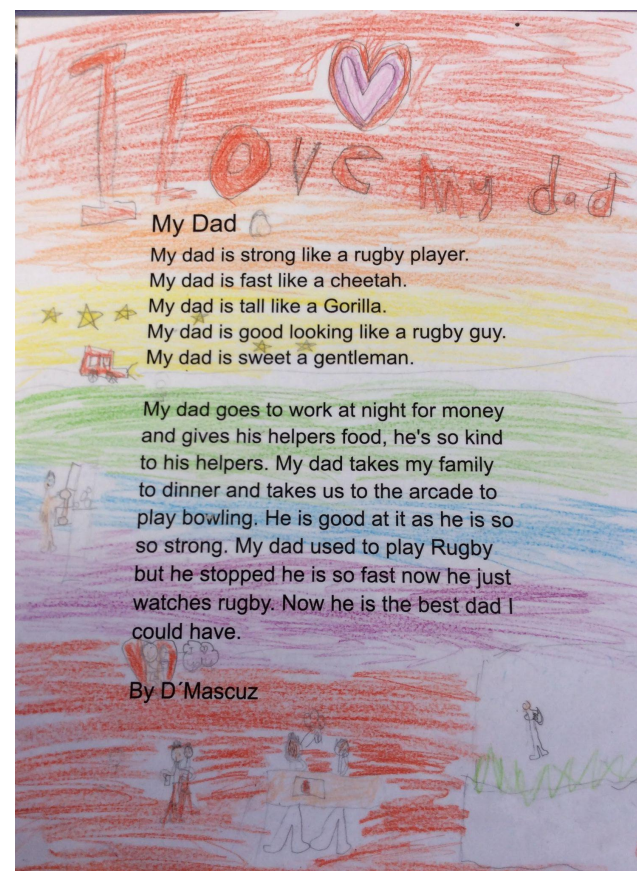 I Love my dad
My Dad
My dad is strong like a rugby player.
My dad is fast like a cheetah.
My dad is tall like a Gorilla.
My dad is good looking like a rugby guy.
My dad is sweet a gentleman.
My dad goes to work at night for money
and gives his helpers food, he's so kind
to his helpers. My dad takes my family
to dinner and takes us to the arcade to
play bowling. He is good at it as he is so
so strong. My dad used to play Rugby
but he stopped he is so fast now he just
watches rugby. Now he is the best dad I
could have.
By D´Mascuz